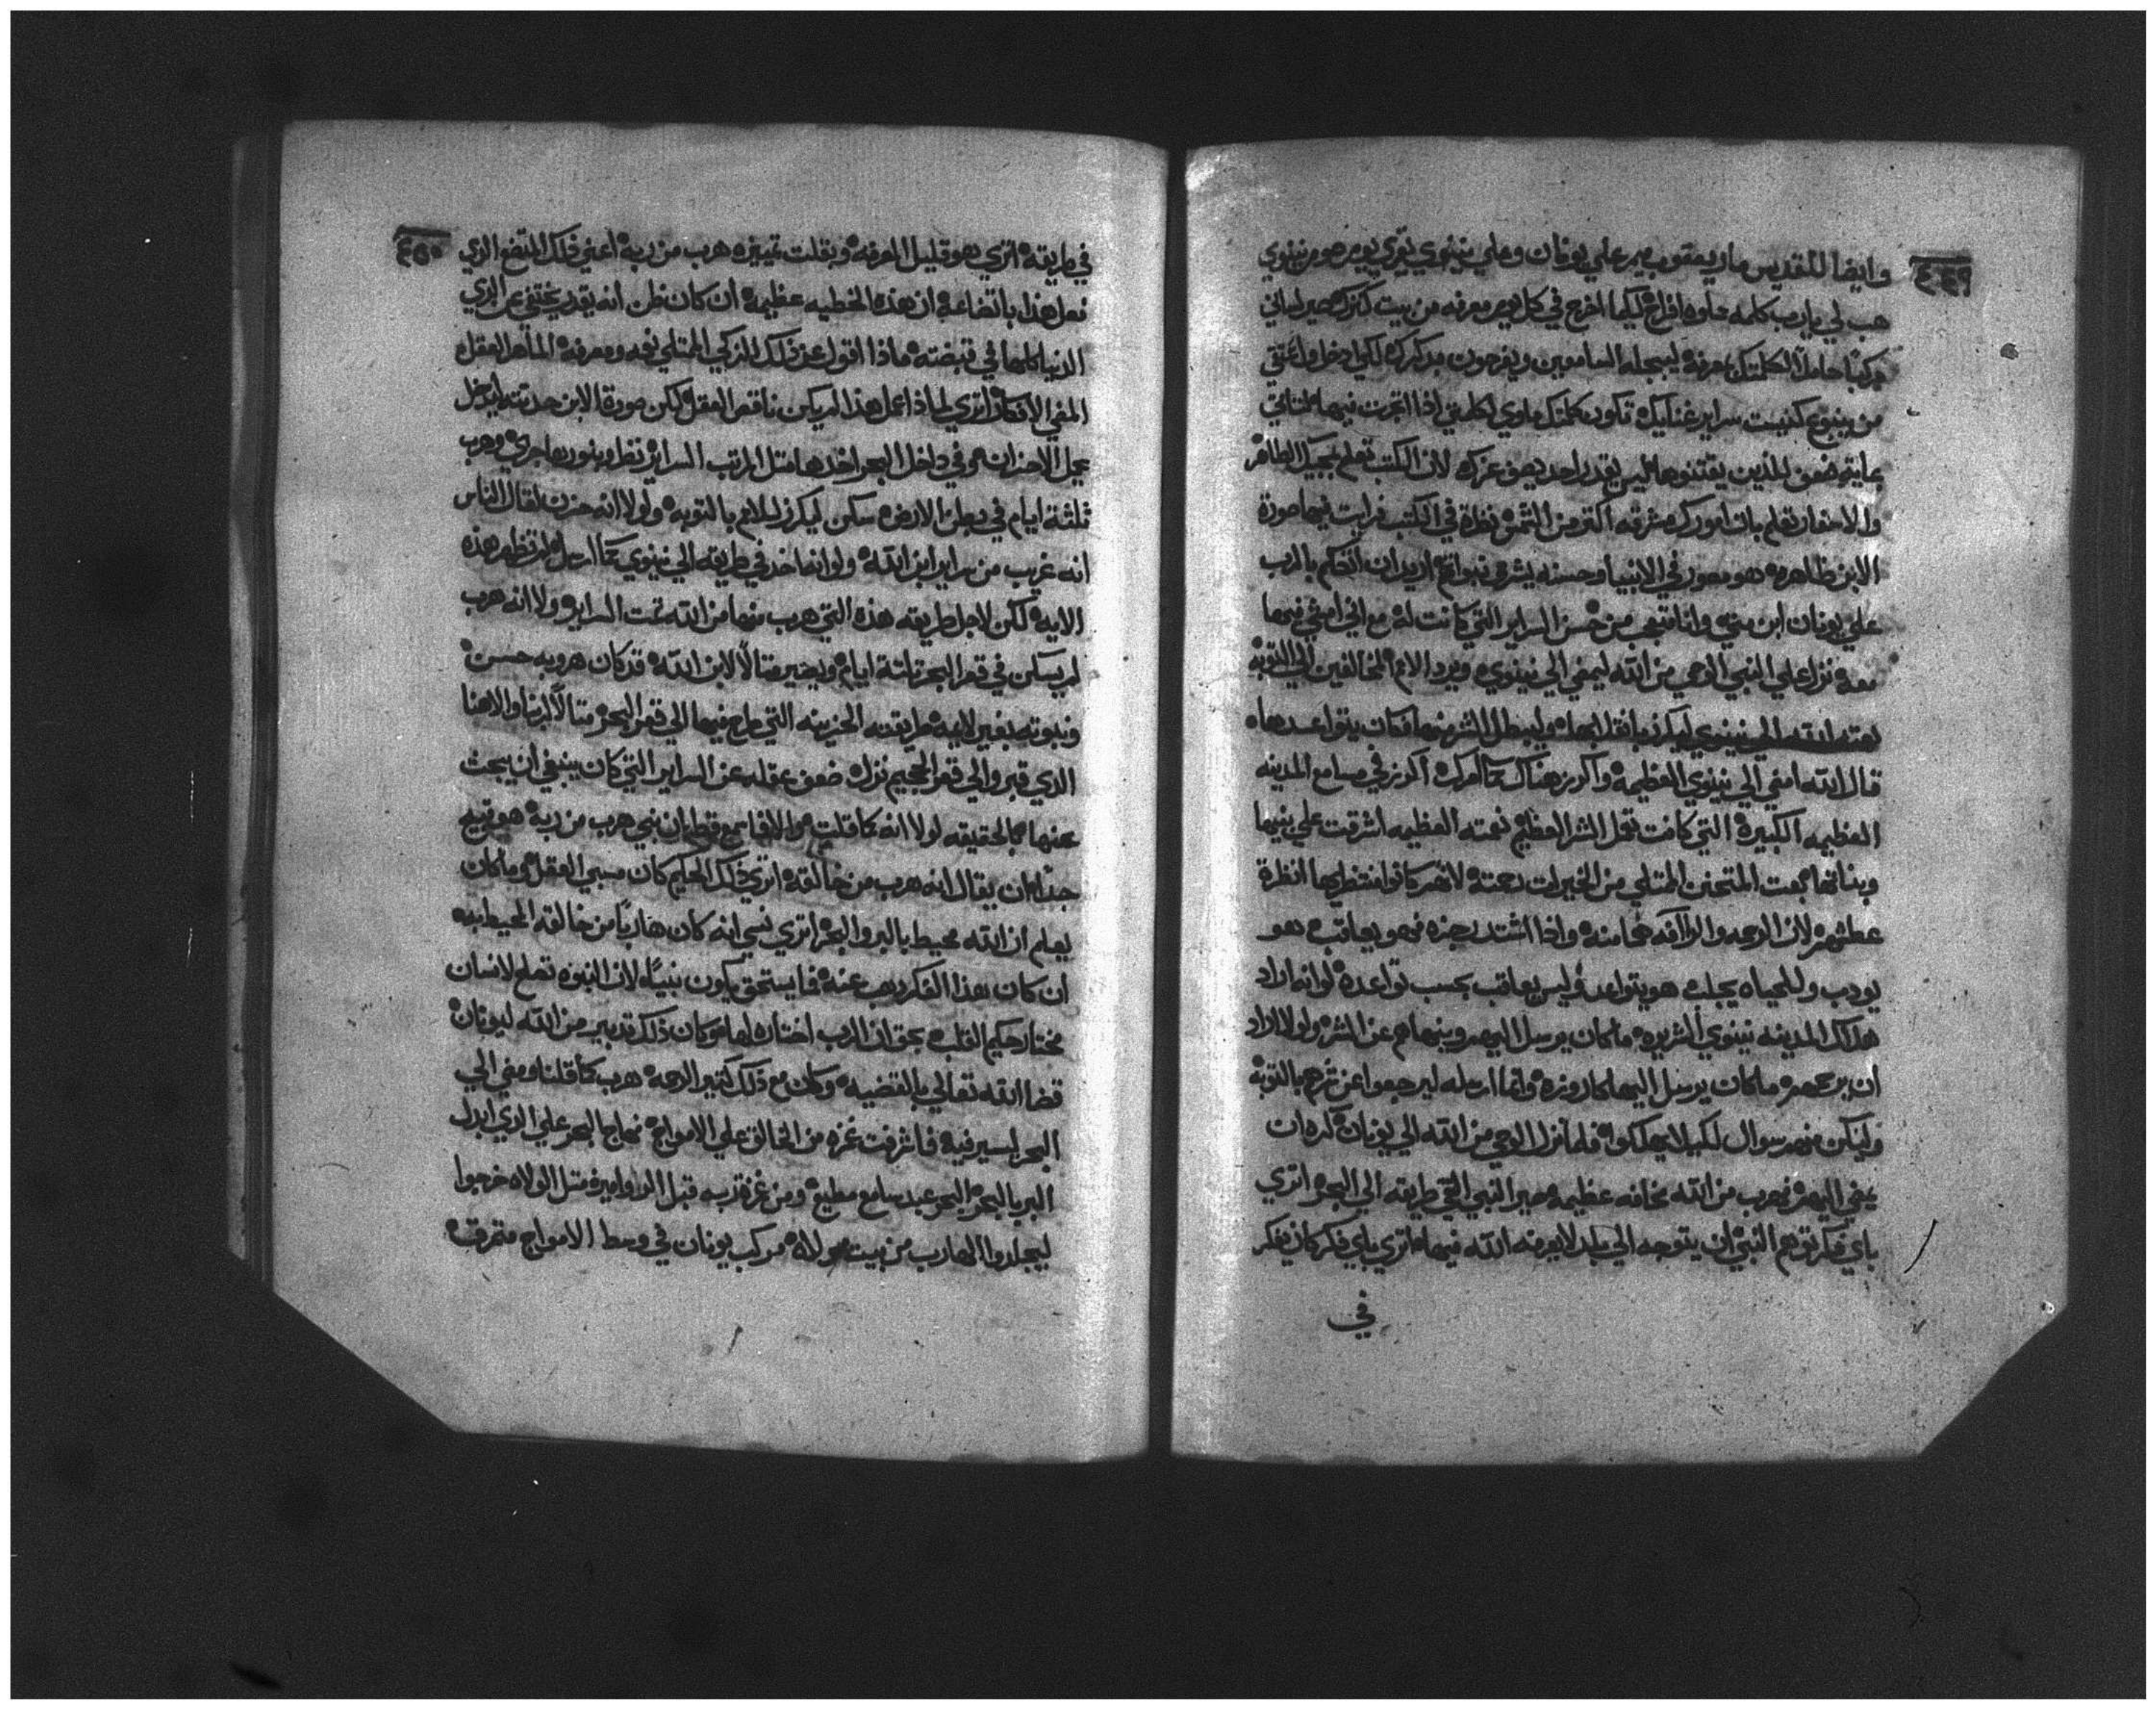 ٤٤٩
وايضا للقديس ماريعقوب ميمر علي يونان وعلي نينوي يقري يوم صوم نينوي
هب لي يارب كلمه حلوه افراح لكيما اخرج في كل يوم معرفه من بيت كنزك صير لساني
مركبا حاملا لكلمتك بمعرفه ليبجله السامعين ويفرحون
من ينبوع كنيست سراير غناك تكون كلمتك لكلمتي اذا اتجرت فيها
ضعف للذين يقتنوها ليس يقدر احد يصف عزك لان الكتب تعلم بجميل الظاهر
والاسفار تعلم بان امورك مشرقه اكتر من الشمس نظرة في الكتب فرايت فيها صورة
الابن ظاهره هو مصور في الانبيا وحسنه يشرق نبواتهم اريد ان اتكلم يالرب
علي يونان ابن متي وانا متعجب من حسن السراير التي كانت له مع اني امشي فيها
معه نزل علي النبي الوحي من الله ليمضي الي نينوي ويرد الامم المخالفين الي التوبه
بعته الله الي نينوي ليكرز بانقلابها وليبطل الشر منها فكان يتواعدها
قال الله امضي الي نينوي العظيمه واكرز هناك كما امرك اكرز في مسامع المدينه
العظيمه الكبيرة التي كانت تعمل الشر العظيم نعمته العظيمه اشرقت علي بنيها
وبناتها بعت المتحنن الممتلي من الخيرات رحمته لانهم كانوا منتظريها انظرة
عطشهم لان الرحمه والرافه منه واذا اشتد رجزه فهو يعاقب وهو
يودب وللحياه يجلب هو يتواعد وليس يعاقب بحسب تواعده لو انه اراد
هلاك المدينه نينوي الشريره ماكان يرسل اليهم وينهاهم عن الشر ولولا اراد
ان يرحمهم ماكان يرسل اليها كاروزه وانما ارسله ليرجعوا عن شرهم بالتوبه
وليكن منهم سوال لكيلا يهلكوا فلما نزل الوحي من الله الي يونان
يمضي اليهم فهرب من الله مخافه عظيمه صير النبي القي طريقه الي البحر اتري
باي فكر توهم النبي ان يتوجه الي بلد لايعرفه الله فيها اتري باي فكر كان يفكر
في
٤٥٠
في طريقه اتري هو قليل المعرفه وبقلت تمييزه هرب من ربه اعني ذلك المتضع الذي
فعل هذا باتضاعه ان هذه الخطيه عظيمه ان كان ظن انه يقدر يختفي عن الذي
الدنيا كلها في قبضته ماذا اقول عن ذلك الذكي الممتلي نعمه ومعرفه الماهر العقل
المضي الافكار اتري لماذا عمل هذا لم يكن ناقص العقل لكن صورة الابن جذبته ليدخل
بحمل الاحزان في داخل البحر اخدها متل المرتب السراير نظر وبنورها جري وهرب
ثلثة ايام في بطن الارض سكن ليكرز للامم بالتوبه ولولا انه حزن لقال الناس
انه غريب من سراير ابن الله ولو انه اخد في طريقه الي نينوي كما ارسل لم تظهر هذه
الايه لكن لاجل طريقه هذه التي هرب منها من الله تمت السراير ولولا انه هرب
لم يسكن في قعر البحر تلتة ايام ويصير متالا لابن الله قد كان هروبه حسن
ونبوته بغير لايمه طريقته الحزينه التي ماج فيها الي قعر البحر متالا لربنا والاهنا
الذي قبر والي قعر الجحيم نزل ضعف عقله عن السراير التي كان ينبغي ان يبحث
عنها بالحقيقه لولا انه كما قلت والا فما سمع قط ان نبي هرب من ربه هو قبيح
جدا ان يقال انه هرب من خالقه اتري ذلك الحكيم كان مسبي العقل وماكان
يعلم ان الله محيط بالبر والبحر اتري نسي انه كان هاربا من خالقه المحيط به
ان كان بهذا الفكر هرب عنه فما يستحق يكون نبيا لان النبوه تصلح لانسان
مختار حكيم القلب بحق ان الرب اختاره لها وكان ذلك تدبير من الله ليونان
قضا الله تعالي بالقضيه وكان مع ذلك كتير الرحمه هرب كما قلنا ومضي الي
البحر ليسير فيه فاشرفت غمزه من الخالق علي الامواج فهاج البحر علي الذي ابدل
البر بالبحر البحر عبد سامع مطيع ومن غمزة ربه قبل الاوامير متل الولاه خرجوا
ليجلدوا الهارب من بيت مولاه مركب يونان في وسط الامواج متمرقه